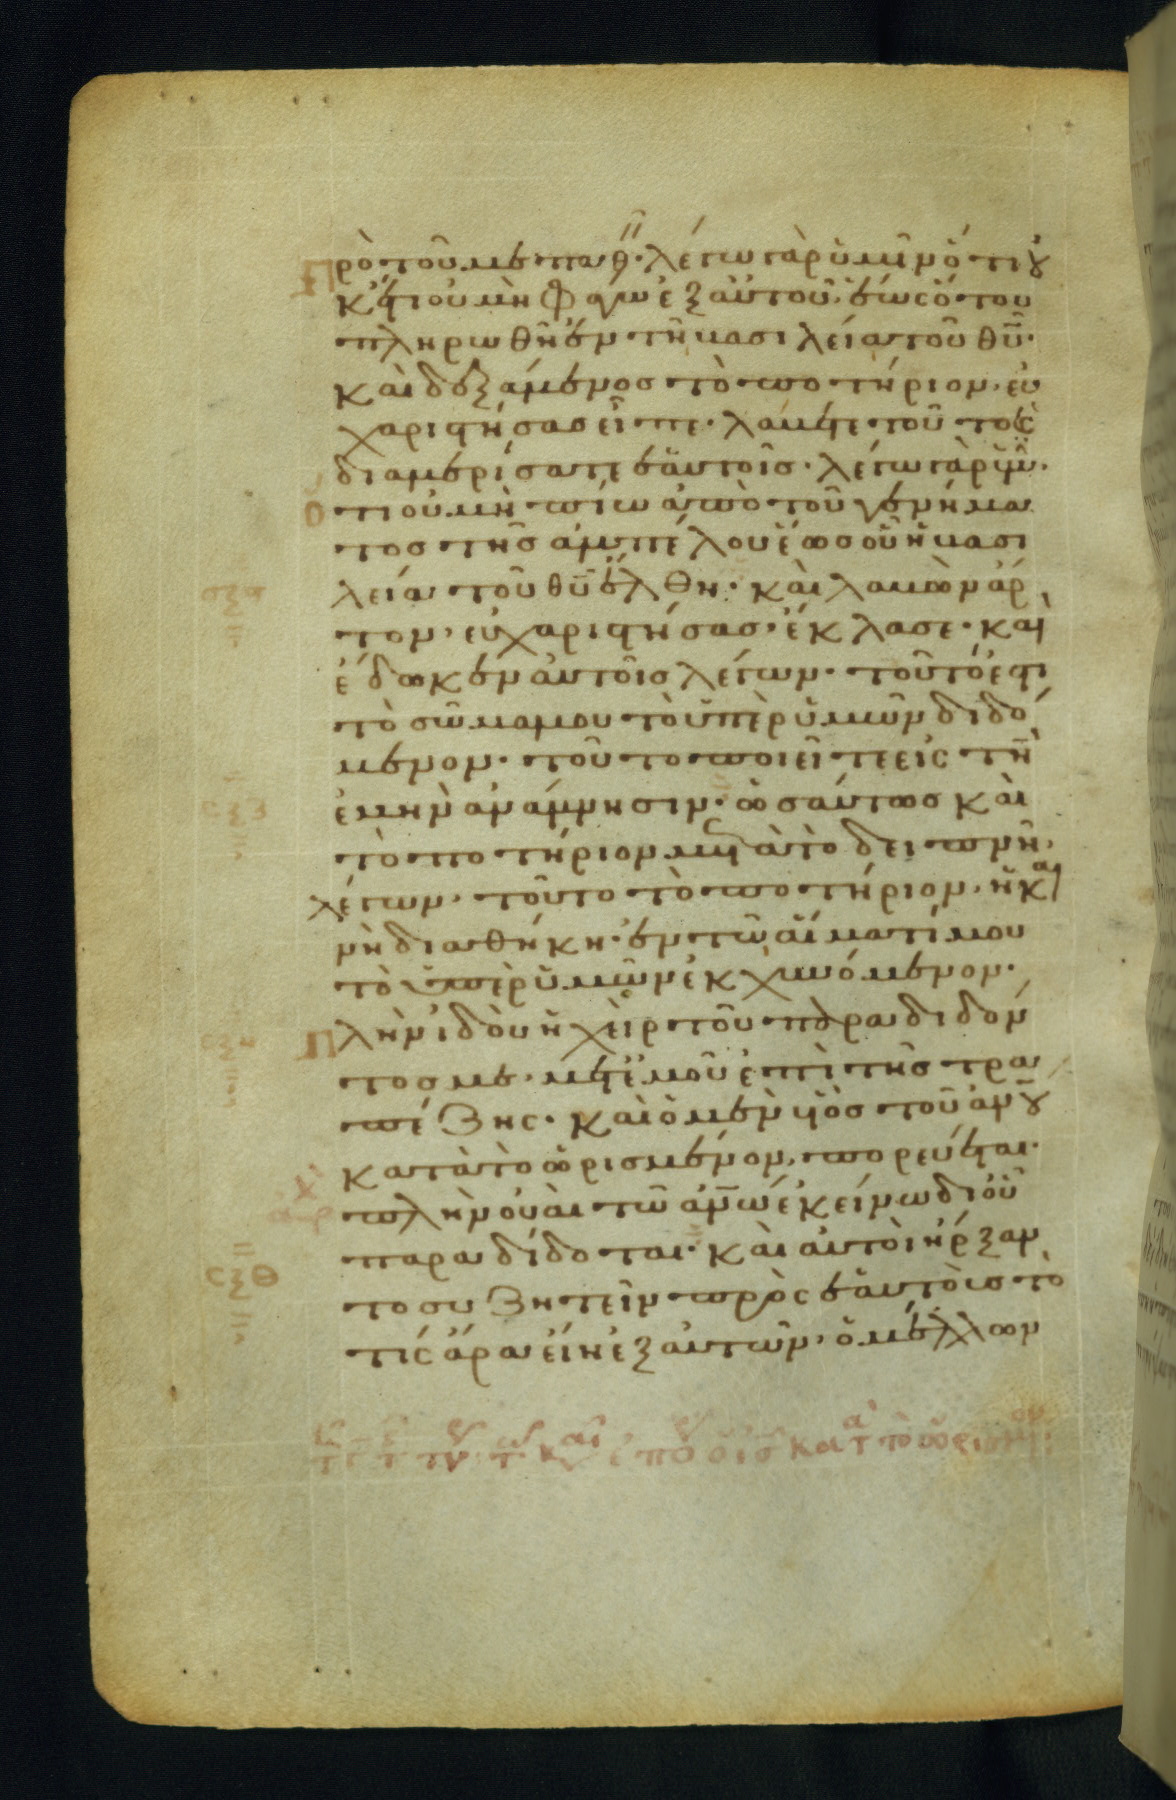 Πρὸ τοῦ με παθεῖν· λέγω γὰρ ὑμῖν ὅτι οὐ
κέτι οὐ μὴ φάγω ἐξ αὐτοῦ. ἕως ὅτου
πληρωθῆ ἐν τῆ βασιλεία τοῦ θυ̅·
καὶ δεξάμενος τὸ ποτήριον, εὐ
χαριστήσας εἶπε· λάβετε τοῦτο καὶ
διαμερίσατε ἑαυτοῖς· λέγω γὰρ ὑμῖν·
Ὅτι οὐ μὴ πίω ἀπὸ τοῦ γενήμα
τος τῆς ἀμπέλου ἕως οὗ ἡ βασι
σξα
λεία τοῦ θυ̅ ἔλθη· καὶ λαβὼν ἄρ
τον, εὐχαριστήσας· ἔκλασε· καὶ
ἔδωκεν αὐτοῖς λέγων· τοῦτό ἐστι
τὸ σῶμα μου τὸ ὑπὲρ ὑμῶν διδό
μενον· τοῦτο ποιεῖτε εἰς τὴν
ἐμὴν ἀνάμνησιν· ὡσαύτως καὶ
τὸ ποτήριον μετὰ τὸ δειπνῆσαι,
λέγων, τοῦτο τὸ ποτήριον, ἡ και
νὴ διαθήκη· ἐν τῶ αἵματί μου
τὸ ὑπὲρ ὑμῶν ἐκχυνόμενον·
Πλὴν ἰδοὺ ἡ χεὶρ τοῦ παραδιδόν
τος με, μετ' ἐμοῦ ἐπὶ τῆς τρα
πέζης· καὶ ὁ μὲν υἱὸς τοῦ ἀνου
κατὰ τὸ ὡρισμένον, πορεύεται·
πλὴν οὐαὶ τῶ ἀνω̅ ἐκείνω δι' οὗ
παραδίδοται· καὶ αὐτοὶ ἤρξαν
σξθ
το συζητεῖν πρὸς ἑαυτοὺς τὸ
τίς ἄρα εἴη ἐξ αὐτῶν, ὁ μέλλων